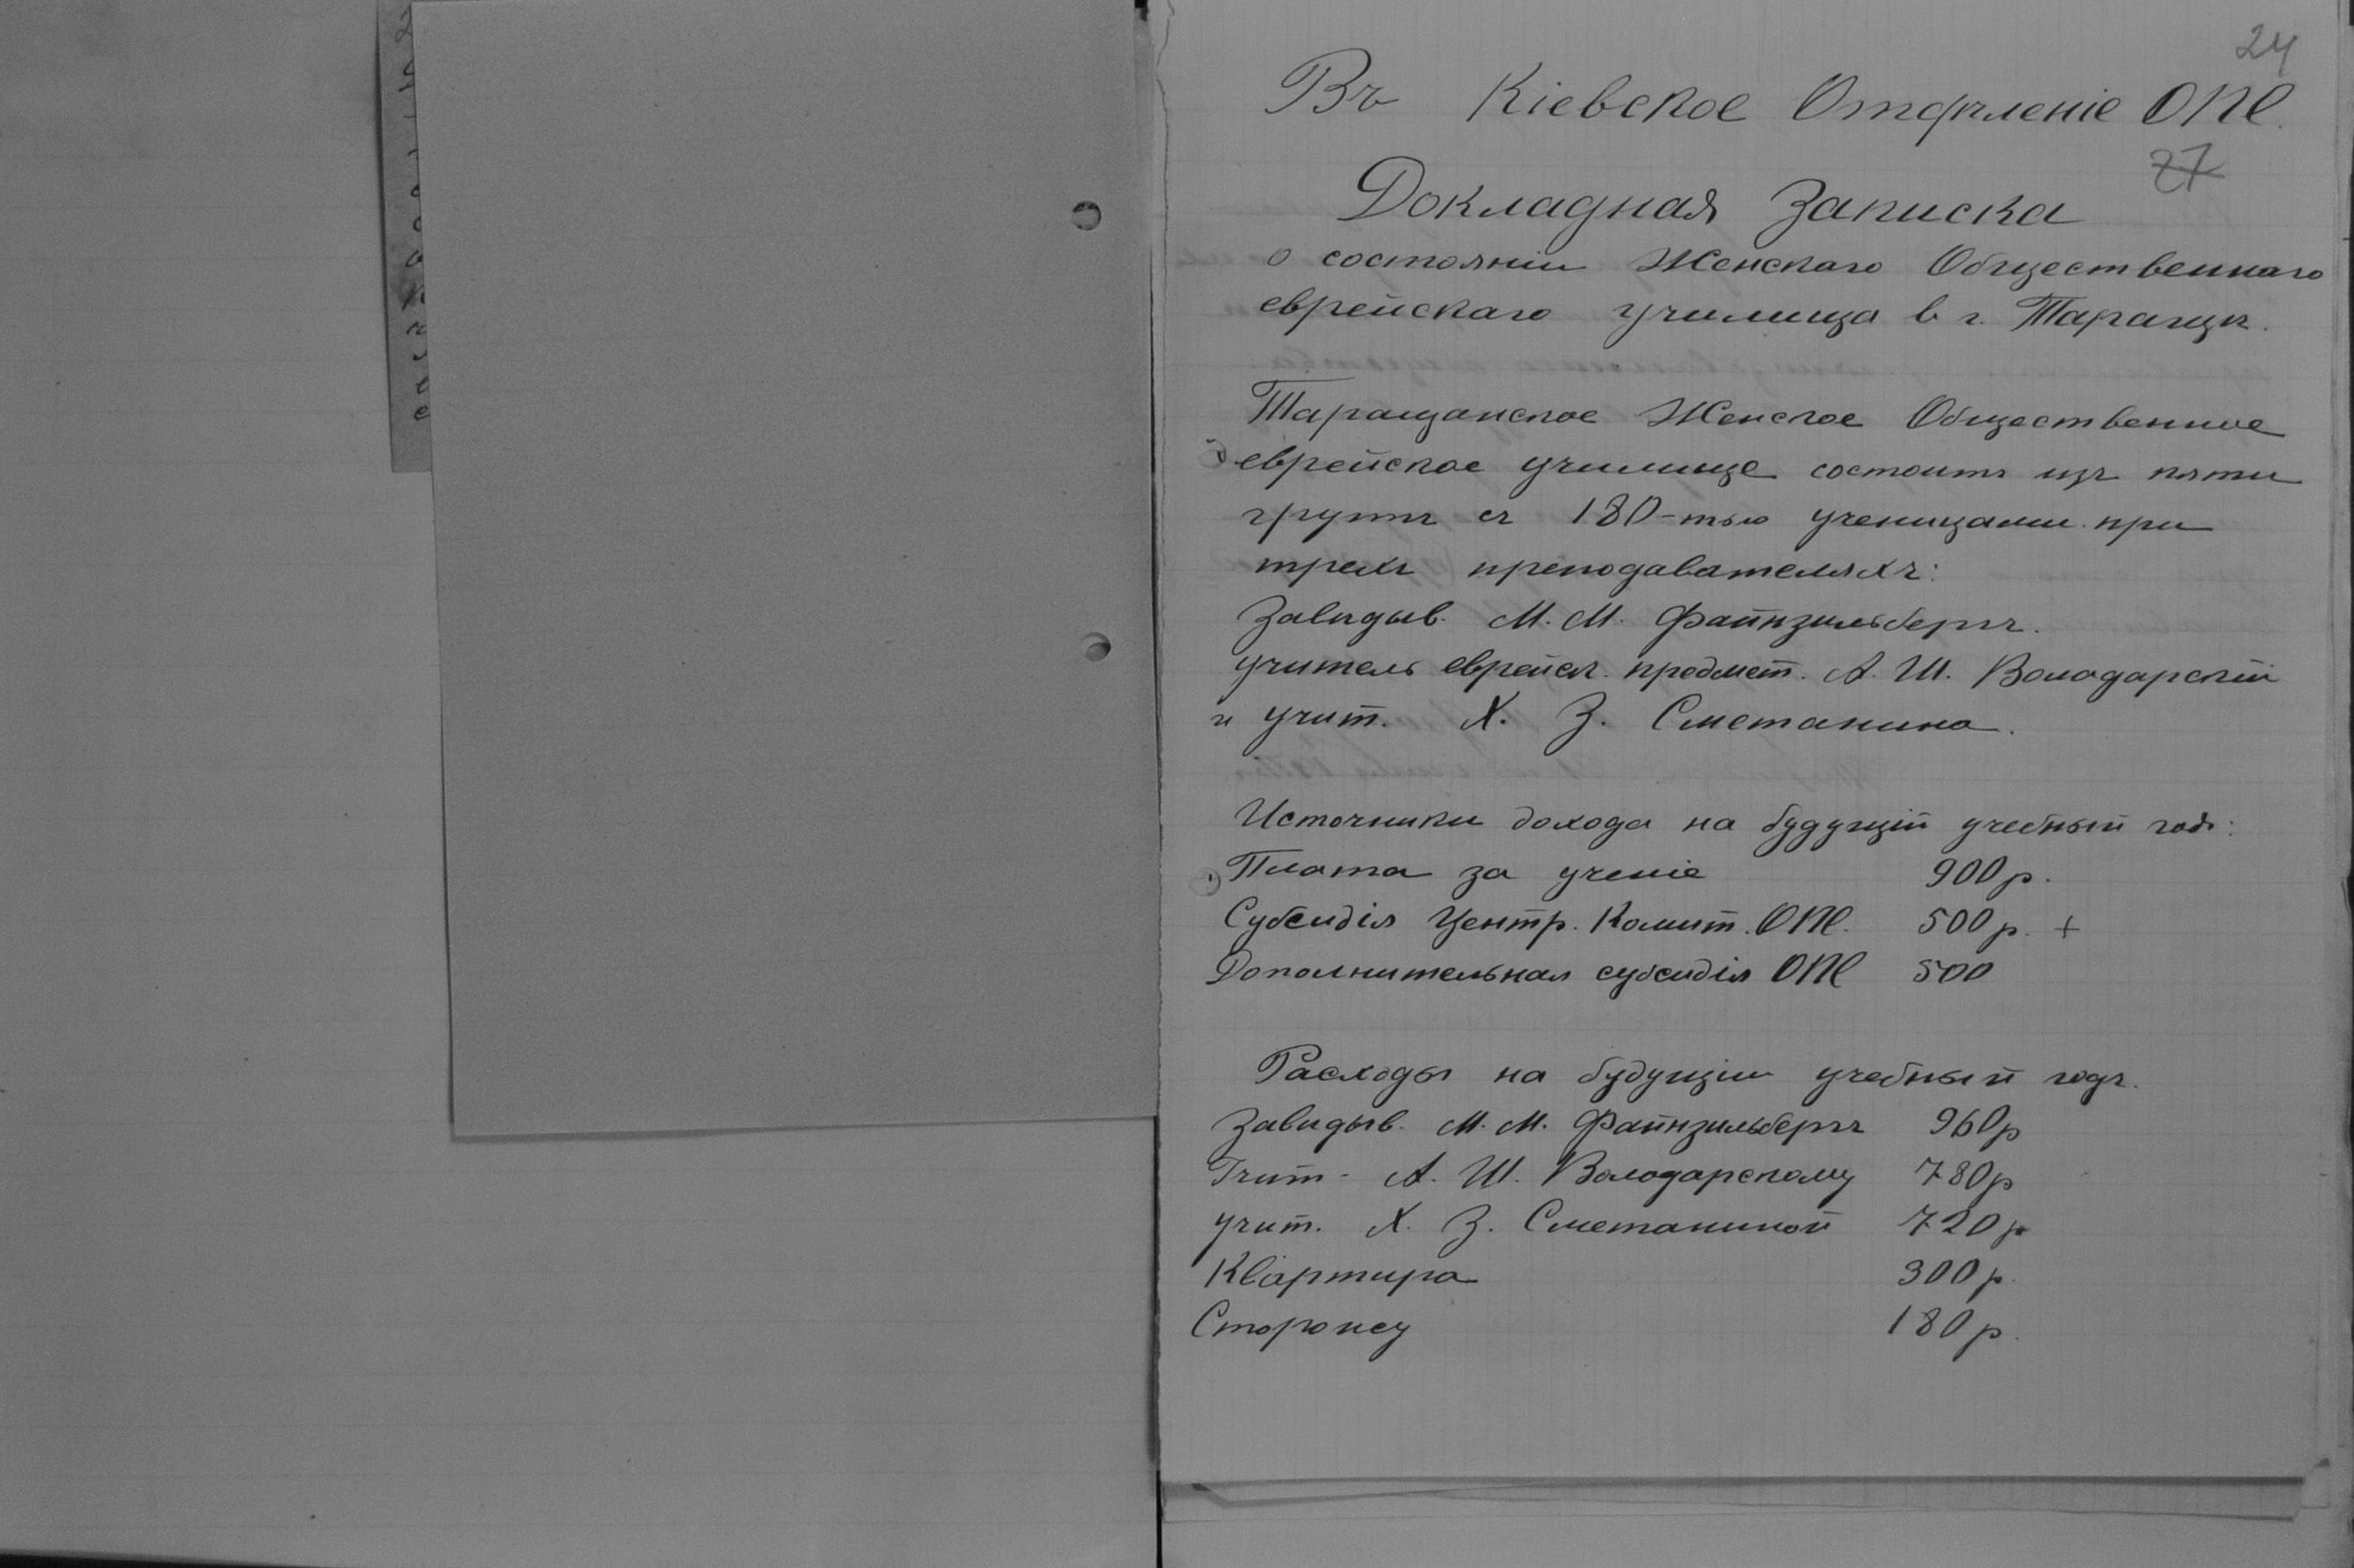 24
Въ Кіевское Отдѣленіе ОПЕ.
27
Докладная Записка
о состояніи Женскаго Общественнаго
еврейскаго училища в г. Таращѣ.
Таращанское Женское Общественное
еврейское училище состоитъ изъ пяти
группъ съ 180-тью ученицами при
трехъ преподавателяхъ:
Завѣдыв. М. М. Файнзильбергъ.
учитель еврейск. предмет. А. Ш. Володарскій
и учит. Х. З. Сметанина.
Источники дохода на будущій учебный годъ:
Плата за ученіе 900 р.
Субсидія Центр. Комит. ОПЕ. 500 р. +
Дополнительная субсидія ОПЕ 500
Расходы на будущій учебный годъ.
Завѣдыв. М. М. Файнзильбергъ 960 р
Учит. А. Ш. Володарскому 780 р
учит. Х. З. Сметаниной 720 р
Квартира 300 р.
Сторожу 180 р.